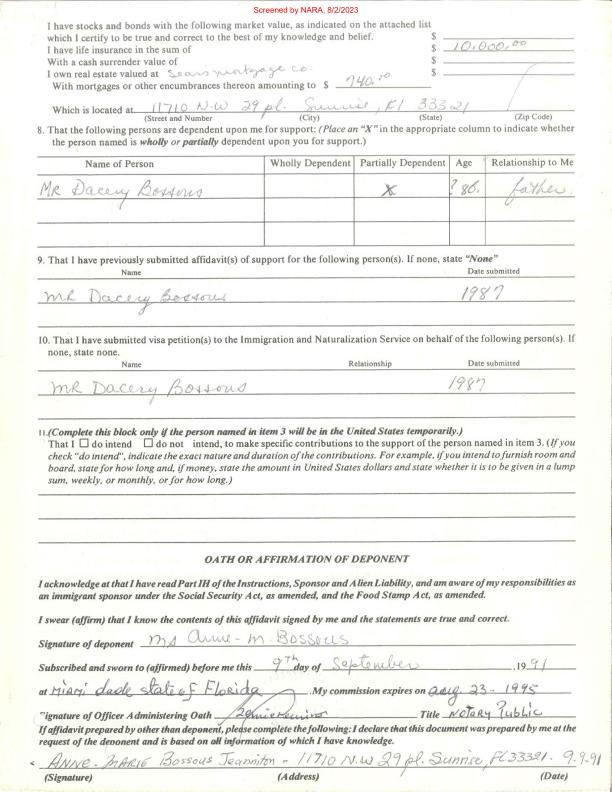 Screened by NARA, 8/2/2023
I have stocks and bonds with the following market value, as indicated on the attached list
which I certify to be true and correct to the best of my knowledge and belief. $
I have life insurance in the sum of $ 10.000.00
With a cash surrender value of $
I own real estate valued at Sears mortgage co. $
With mortgages or other encumbrances thereon amounting to $ 740.00
Which is located at 11710 N.W 29 pl. Sunrise, Fl 33321
(Street and Number) (City) (State) (Zip Code)
8. That the following persons are dependent upon me for support: (Place an "X" in the appropriate column to indicate whether
the person named is wholly or partially dependent upon you for support.)
Name of Person Wholly Dependent Partially Dependent Age Relationship to Me
MR Dacery Bossous X 86. father.
9. That I have previously submitted affidavit(s) of support for the following person(s). If none, state "None"
Name Date submitted
MR Dacery Bossous 1987
10. That I have submitted visa petition(s) to the Immigration and Naturalization Service on behalf of the following person(s). If
none, state none.
Name Relationship Date submitted
MR Dacery Bossous 1987
11.(Complete this block only if the person named in item 3 will be in the United States temporarily.)
That I ☐ do intend ☐ do not intend, to make specific contributions to the support of the person named in item 3. (If you
check "do intend", indicate the exact nature and duration of the contributions. For example, if you intend to furnish room and
board, state for how long and, if money, state the amount in United States dollars and state whether it is to be given in a lump
sum, weekly, or monthly, or for how long.)
OATH OR AFFIRMATION OF DEPONENT
I acknowledge at that I have read Part IH of the Instructions, Sponsor and Alien Liability, and am aware of my responsibilities as
an immigrant sponsor under the Social Security Act, as amended, and the Food Stamp Act, as amended.
I swear (affirm) that I know the contents of this affidavit signed by me and the statements are true and correct.
Signature of deponent Ms Anne-M Bossous
Subscribed and sworn to (affirmed) before me this 9th day of September ,19 91
at MiAMi dade state of Florida .My commission expires on aug. 23-1995
Signature of Officer Administering Oath Title Notary Public
If affidavit prepared by other than deponent, please complete the following: I declare that this document was prepared by me at the
request of the deponent and is based on all information of which I have knowledge.
ANNE-MARIE Bossous Jeanniton - 11710 N.W 29 pl. Sunrise, FL 33321. 9.9.91
(Signature) (Address) (Date)